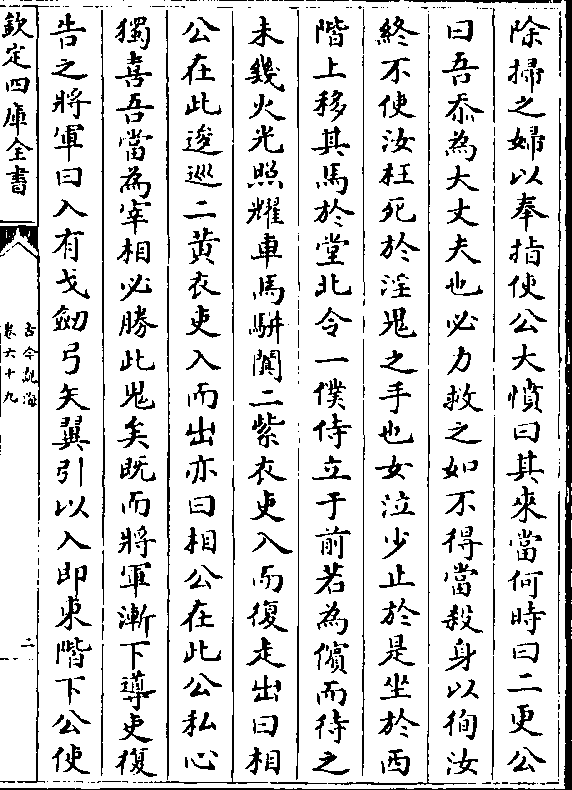 除掃之婦以奉指使公大憤曰其來當何時曰二更公
曰吾忝為大丈夫也必力救之如不得當殺身以徇汝
終不使汝枉死於淫鬼之手也女泣少止於是坐於西
階上移其馬於堂北令一僕侍立于前若為儐而待之
未幾火光照耀車馬駢闐二紫衣吏入而復走出曰相
公在此逡巡二黄衣吏入而出亦曰相公在此公私心
獨喜吾當為宰相必勝此鬼矣既而將軍漸下導吏復
告之將軍曰入有戈劒弓矢翼引以入即東階下公使
欽定四庫全書
古今說海
卷六十九
二